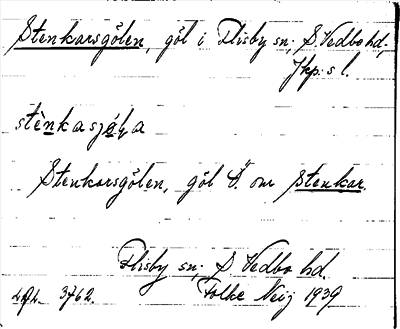 Stenkarsgölen, göl i Flisby sn; S. Vedbo hd;
Jkp:s l.
Stenkarsgölen, göl Ö. om Stenkar.
Flisby sn; S Vedbo hd.
3762. Folke Neij 1939